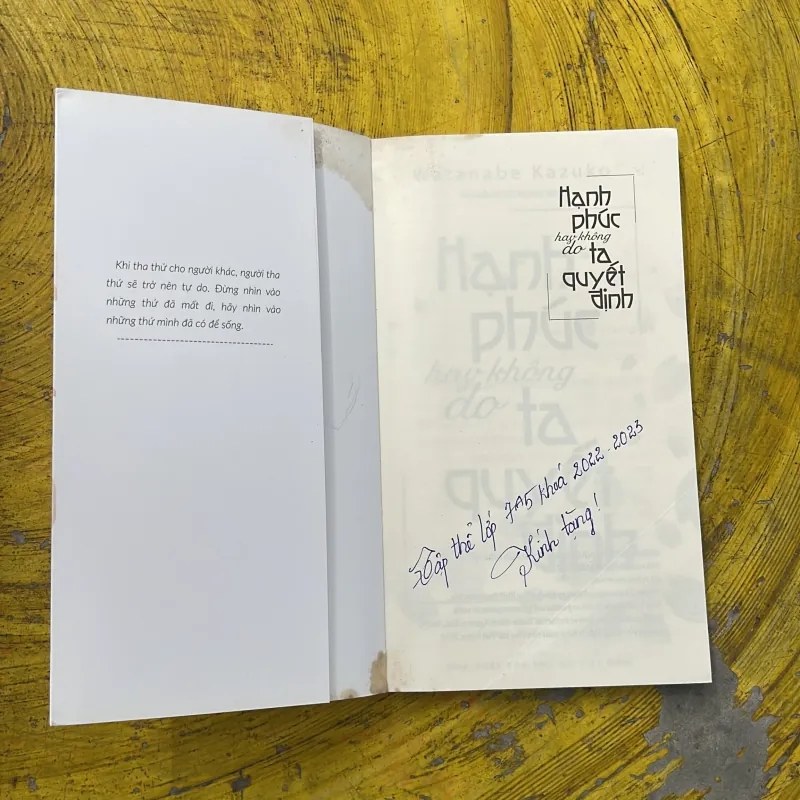 Khi tha thứ cho người khác, người tha
thứ sẽ trở nên tự do. Đừng nhìn vào
những thứ đã mất đi, hãy nhìn vào
những thứ mình đã có để sống.
Hạnh
phúc
hay không
do ta
quyết
định
Watanabe Kazuko
Hạnh
phúc
hay không
do ta
quyết
định
Tập thể lớp 7A5 khoá 2022-2023
Kính tặng!